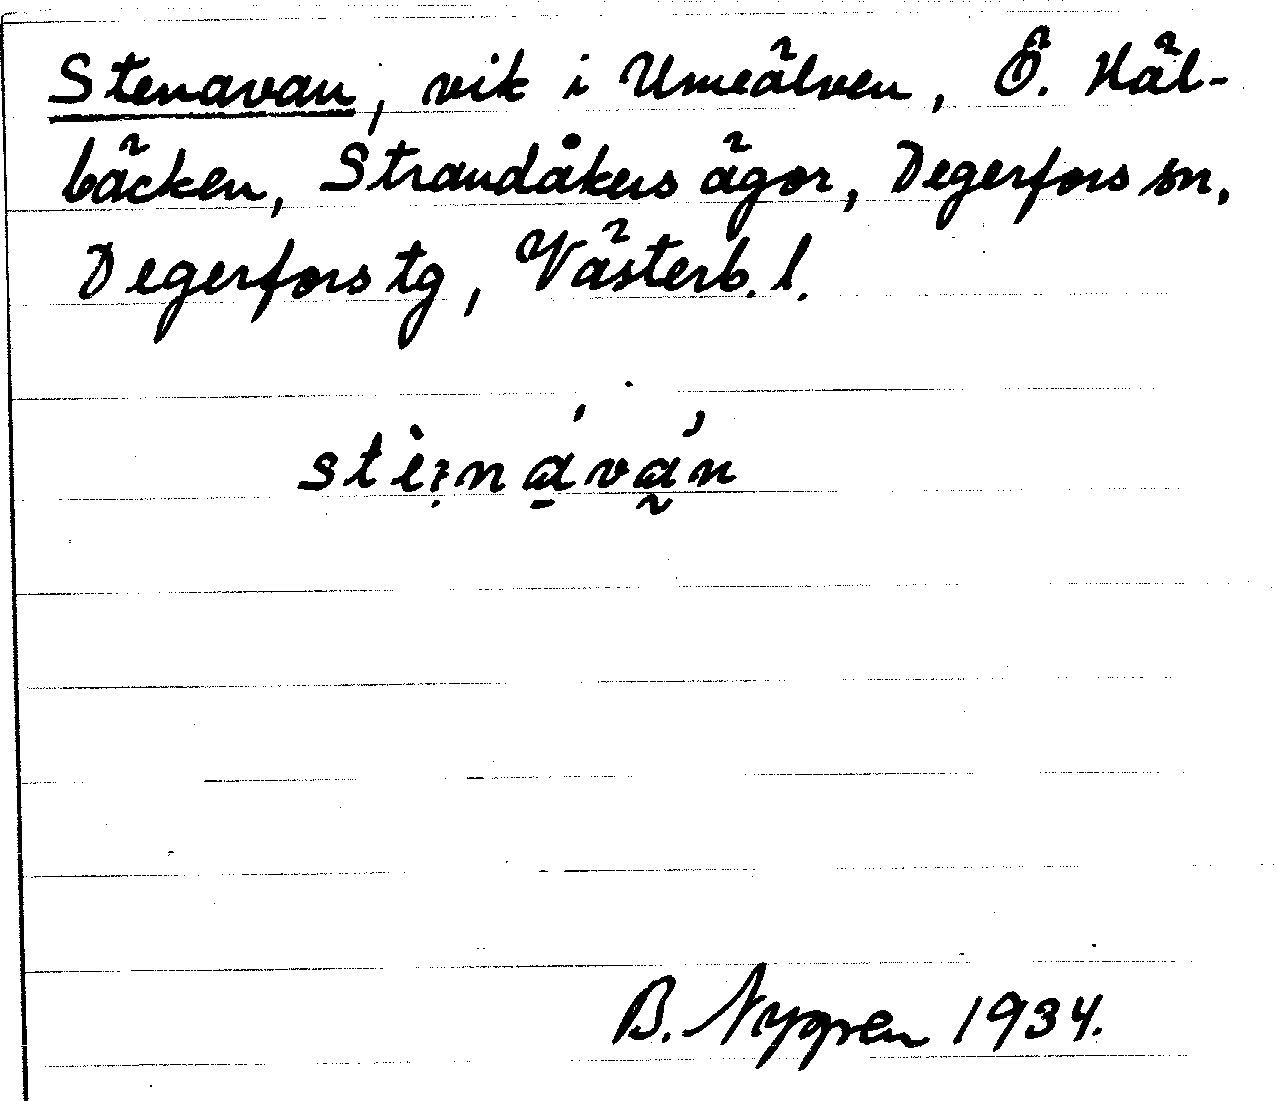 Stenavan, vik i Umeälven, Ö. Häl-
bäcken, Strandåkers ägor, Degerfors sn,
Degerfors tg, Västerb. l.
B. Nygren 1934.